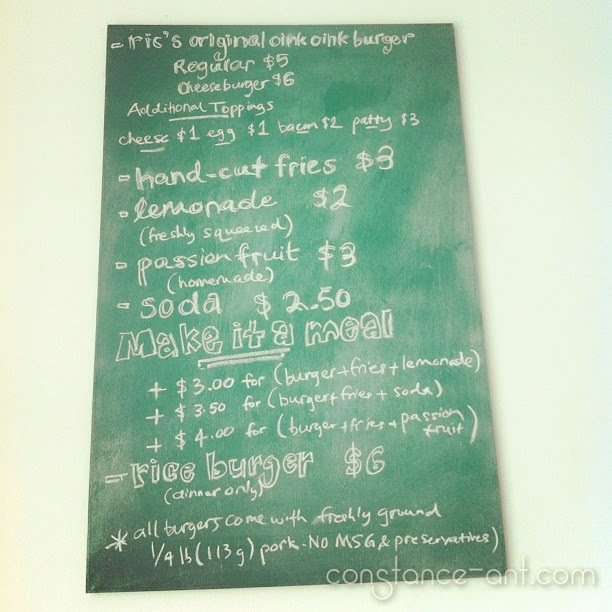 - ric's original oink oink burger
Regular $5
Cheeseburger $6
Additional Toppings
cheese $1 egg $1 bacon $2 patty $3
- hand-cut fries $3
- lemonade $2
(freshly squeezed)
- passionfruit $3
(homemade)
- soda $2.50
Make it a meal
+ $3.00 for (burger+fries+lemonade)
+ $3.50 for (burger+fries+soda)
+ $4.00 for (burger+fries+passion
fruit)
- rice burger $6
(dinner only)
* all burgers come with freshly ground
1/4 lb (113g) pork - NO MSG & preservatives)
constance-ant.com